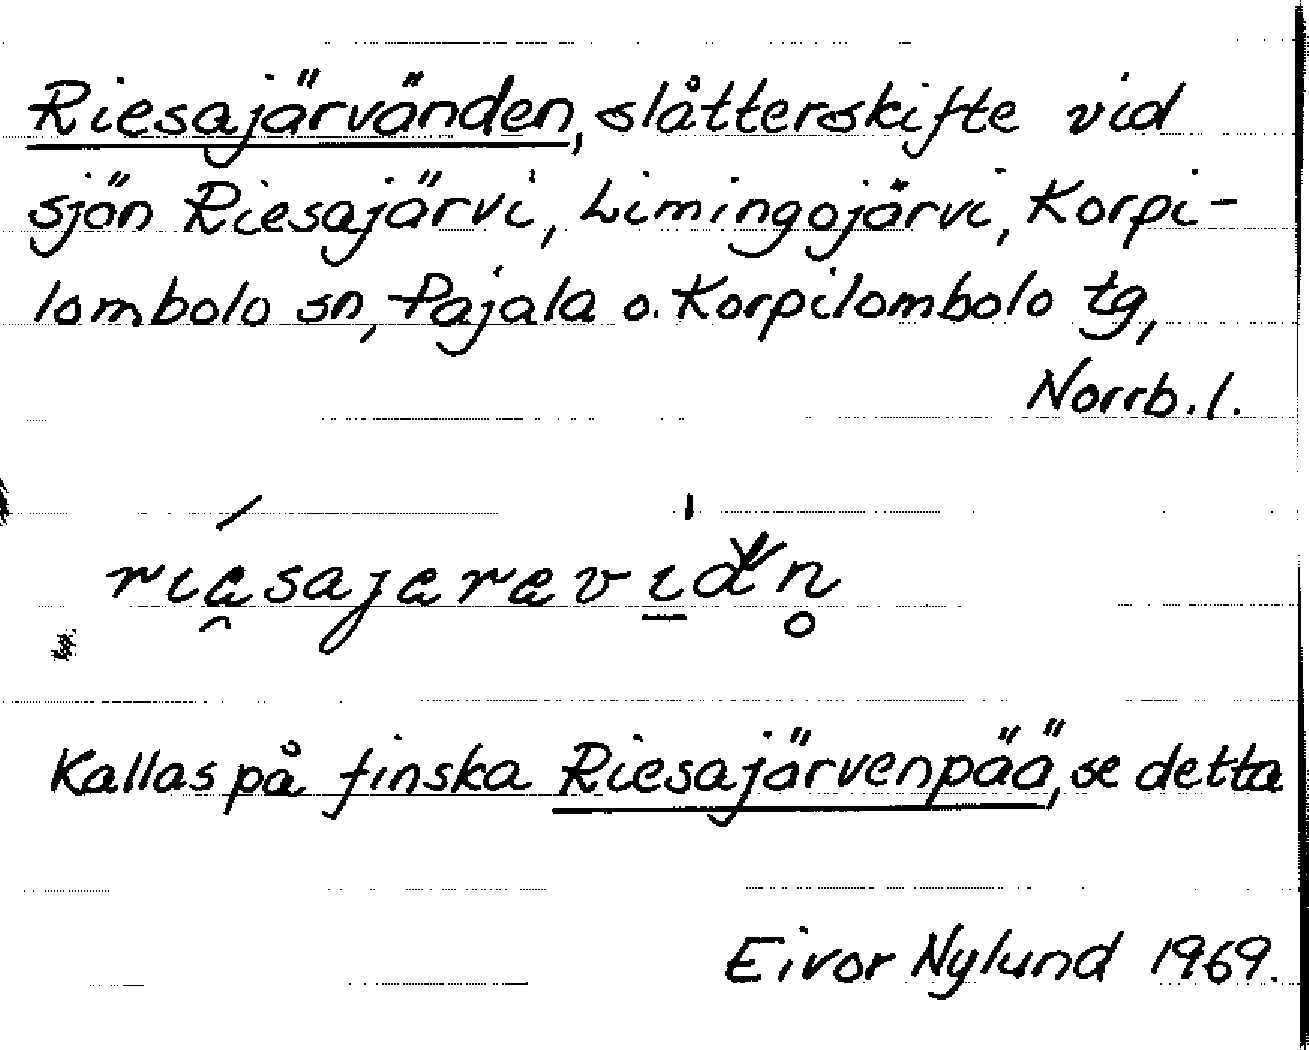 Riesajärvänden, slåtterskifte vid
sjön Riesajärvi, Limingojärvi, Korpi-
lombolo sn, Pajala o. Korpilombolo tg,
Norrb. l.
Kallas på finska Riesajärvenpää, se detta
Eivor Nylund 1969.